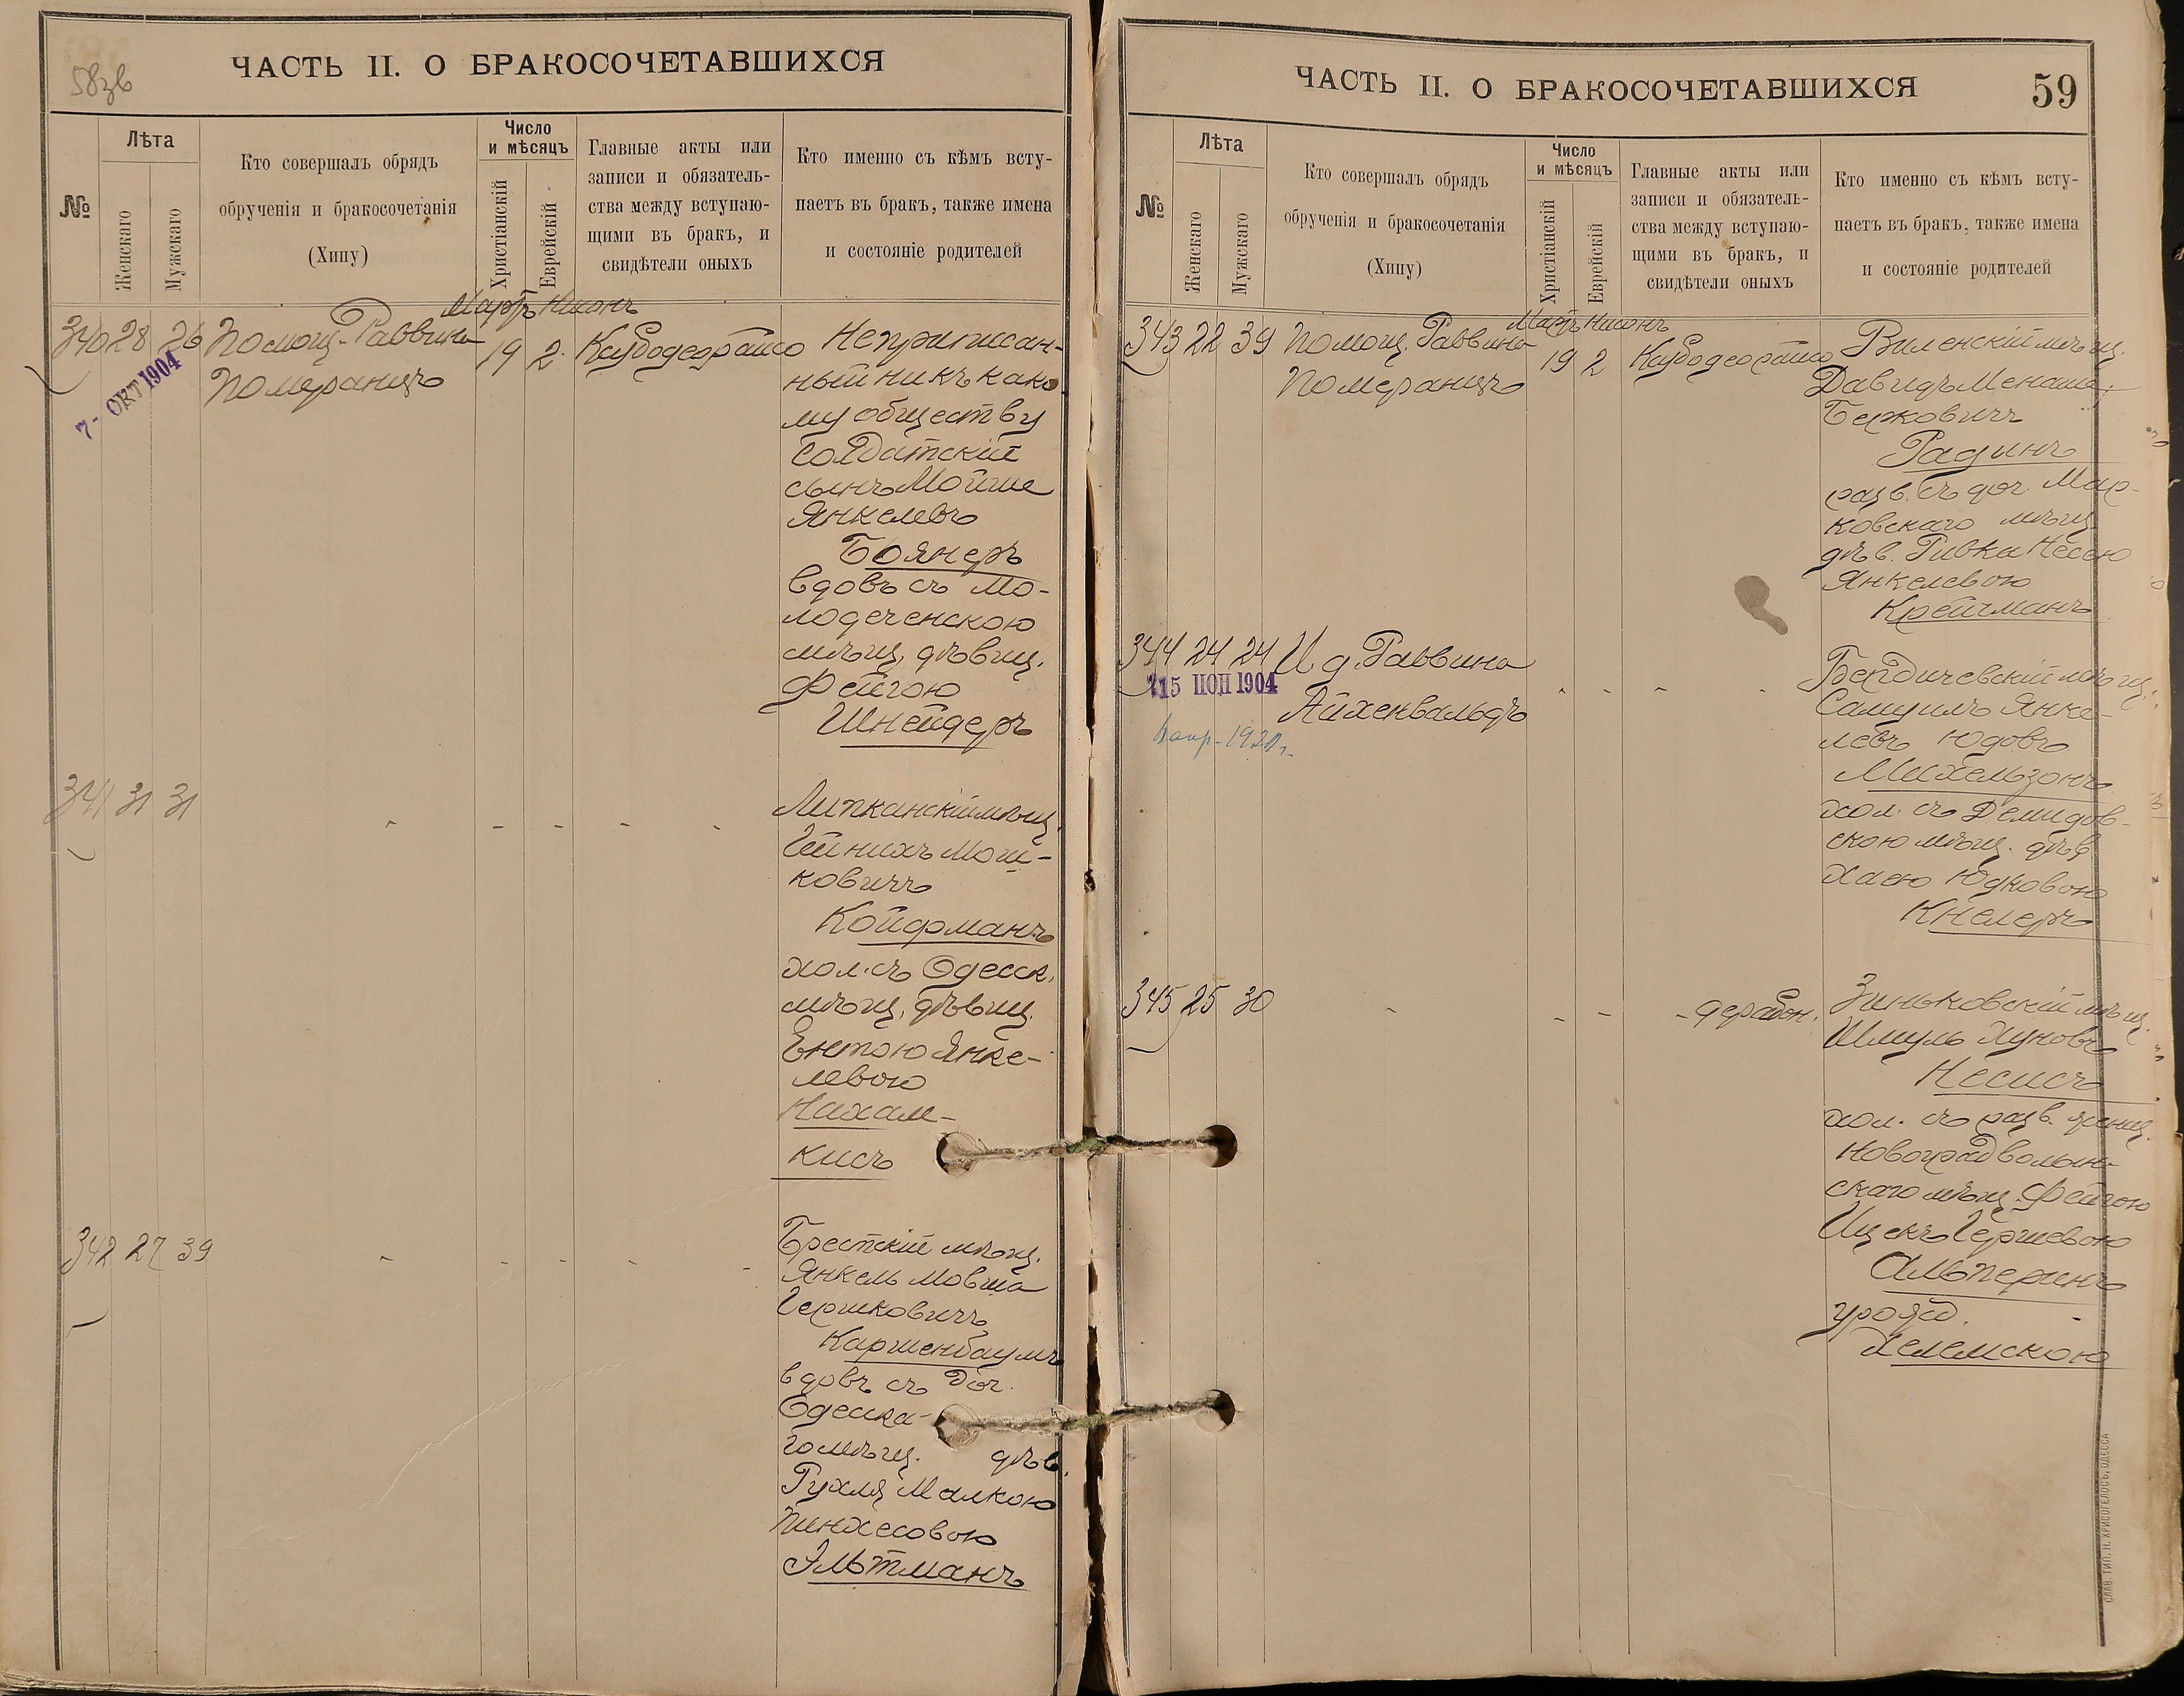 58зв
ЧАСТЬ II. О БРАКОСОЧЕТАВШИХСЯ
№
Лѣта
Женскаго
Мужскаго
Кто совершалъ обрядъ
обрученія и бракосочетанія
(Хипу)
Число
и мѣсяцъ
Христіанскій
Еврейскій
Главные акты или
записи и обязатель-
ства между вступаю-
щими въ бракъ, и
свидѣтели оныхъ
Кто именно съ кѣмъ всту-
паетъ въ бракъ, также имена
и состояніе родителей
Мартъ Нисонъ
340 28 26 Помощ. Раввина 19 2
Померанцъ
7- ОКТ 1904
Неприписан-
ный ни къ како
му обществу
Солдатскій
сынъ Мойше
Янкелевъ
Боянеръ
вдовъ съ Мо-
лодеченскою
мѣщ. дѣвиц.
Фейгою
Шнейдеръ
341 31 31
Липканскій мѣщ.
Гейнихъ Мош-
ковичъ
Койфманъ
хол. съ Одесск.
мѣщ. дѣвиц.
Ентою Янке-
левою
Нахам-
кисъ
342 27 39
Брестскій мѣщ.
Янкель Мовша
Гершковичъ
Каршенбаумъ
вдовъ съ доч.
Одесска-
го мѣщ. дѣв.
Рухля Малкою
Пинхесовою
Эльтманъ
ЧАСТЬ II. О БРАКОСОЧЕТАВШИХСЯ
59
№
Лѣта
Женскаго
Мужскаго
Кто совершалъ обрядъ
обрученія и бракосочетанія
(Хипу)
Число
и мѣсяцъ
Христіанскій
Еврейскій
Главные акты или
записи и обязатель-
ства между вступаю-
щими въ бракъ, и
свидѣтели оныхъ
Кто именно съ кѣмъ всту-
паетъ въ бракъ, также имена
и состояніе родителей
Мартъ Нисонъ
343 22 39 Помощ. Раввина 19 2
Померанцъ
Виленскій мѣщ.
Давидъ Менаше
Берковичъ
Радинъ
разв. съ доч. Мар-
ковскаго мѣщ.
дѣв. Ривка Несею
Янкелевою
Крейчманъ
344 24 24 И д. Раввина
Айхенвальдъ
15 ІЮЛ 1904
Бердичевскій мѣщ.
Самуилъ Янке-
левъ Юдовъ
Михельзонъ
хол. съ Демидов-
скою мѣщ. дѣв
Хаею Юдковою
Кнелеръ
345 25 30
- дерабон.
Зиньковскій мѣщ.
Шмуль Хуновъ
Несисъ
хол. съ разв. женщ.
Новоградволын-
скаго мѣщ. Фейгою
Ицекъ Гершевою
Альперинъ
урожд.
Хелемскою
СЛАВ. ТИП. Н. ХРИСОГЕЛОСЪ, ОДЕССА